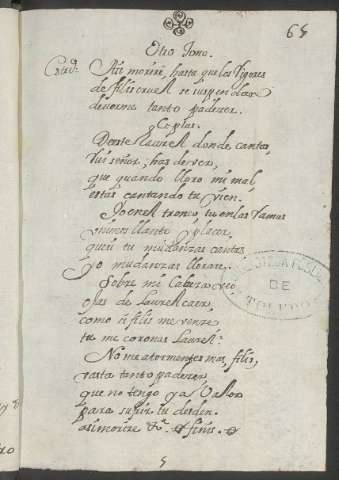 65
Otro Tono.
Estriº. Assi morire, hasta que los Rigores
de filis cruel se suspendan
de verme tanto padecer.
Coplas.
Deste laurel donde cantas,
Ruiseñor, has de ver,
que quando lloro mi mal,
estas cantando tu vien.
Yo en el tronco tu en las Ramas
miren llanto y placer,
que si tu mudanzas cantas
yo mudanzas llorare.
Sobre mi Cabeza veo
ojas de Laurel caer
como si filis me venze
tu me coronas Laurel.
No me atormentes mas, filis,
vasta tanto padezer,
que no tengo ya Valor
para sufrir tu desden.
asi morire &ª. finis.
DE